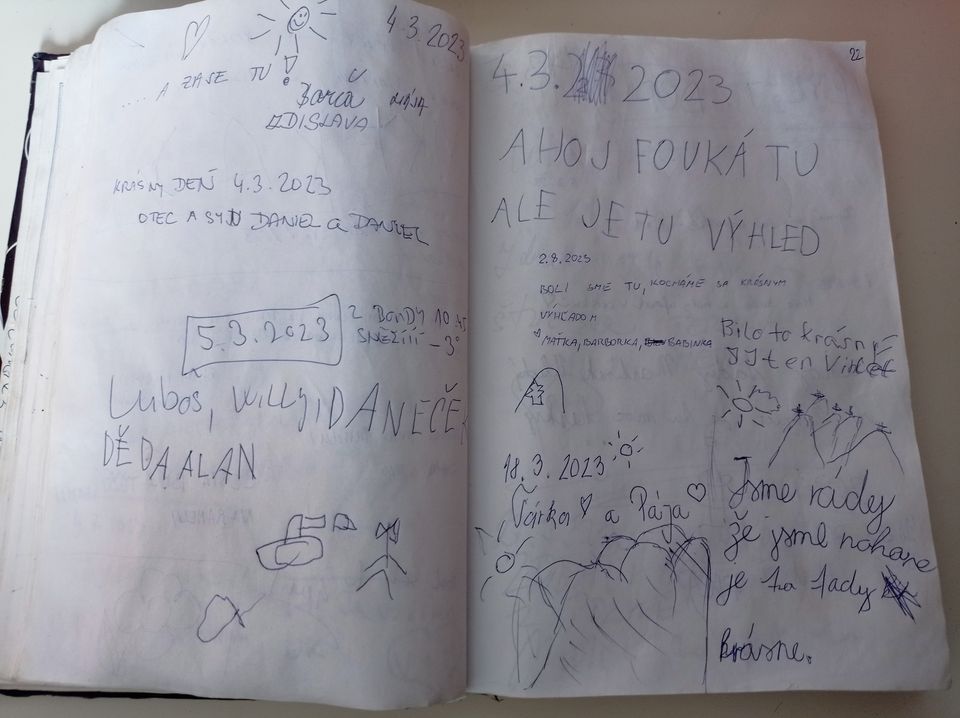 4.3.2023
.... A ZASE TU !
Barča
ZDISLAVA
KRÁSNÝ DEŇ 4.3.2023
OTEC A SYN DANIEL a DANIEL
5.3.2023
Z BONDY 10:45
SNĚŽÍÍÍ -3°
Luboš, Willy, DANEČEK
DĚDA ALAN
22
4.3. 2023
AHOJ FOUKÁ TU
ALE JE TU VÝHLED
2.8.2023
BOLI SME TU, KOCHÁME SA KRÁSNYM
VÝHĽADOM
MAŤKA, BARBORKA, BABINKA
Bilo to krásný
18.3.2023
Šárka a Pája
Jsme rády
že jsme nahoře
je to tady
krásne.